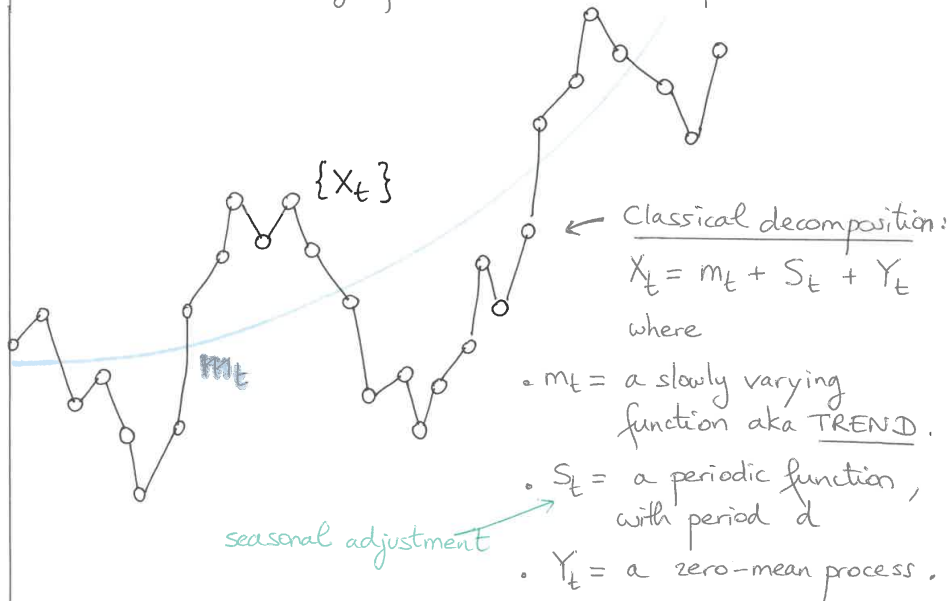 {X_t}
Classical decomposition:
X_t = m_t + S_t + Y_t
where
m_t
. m_t = a slowly varying
function aka TREND.
. S_t = a periodic function,
with period d
seasonal adjustment
. Y_t = a zero-mean process.